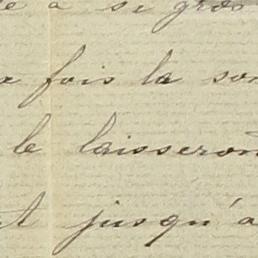 à si gros
fois la son
le laisseron
t jusqu'a